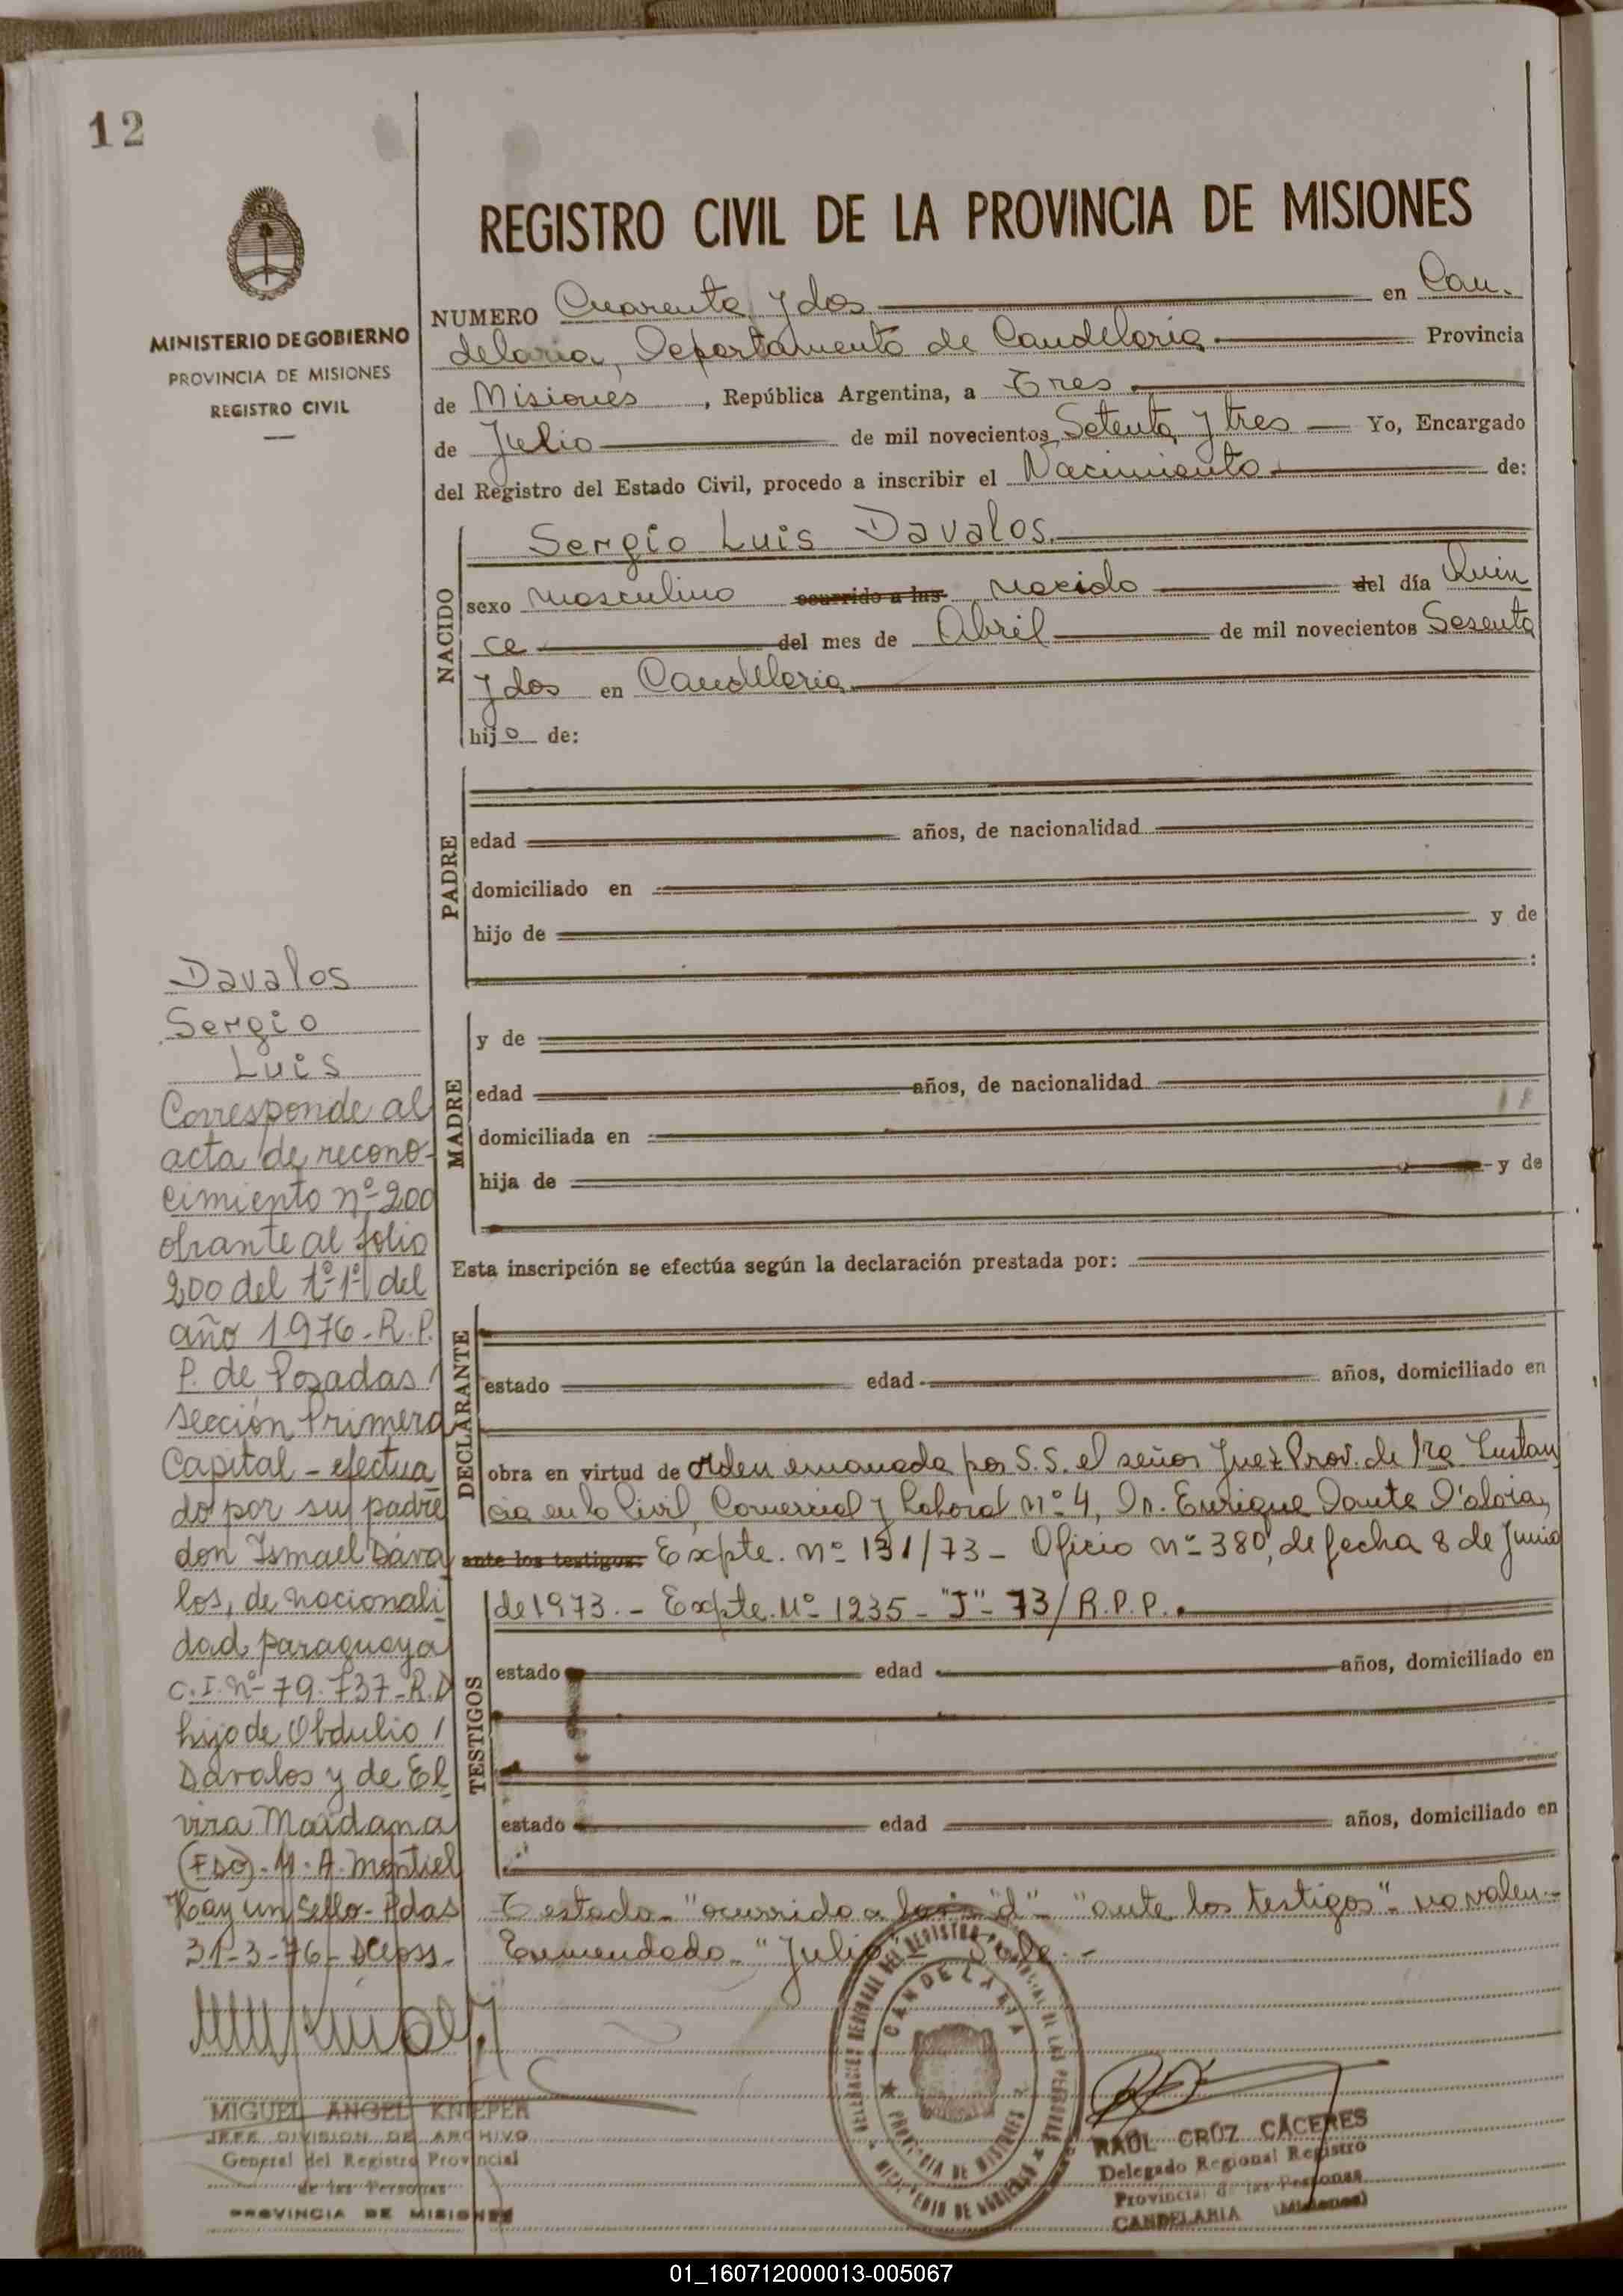 12
MINISTERIO DE GOBIERNO
PROVINCIA DE MISIONES
REGISTRO CIVIL
REGISTRO CIVIL DE LA PROVINCIA DE MISIONES
NUMERO Cuarenta y dos en Can-
delaria, Departamento de Candelaria Provincia
de Misiones, República Argentina, a Tres
de Julio de mil novecientos Setenta y tres Yo, Encargado
del Registro del Estado Civil, procedo a inscribir el Nacimiento de:
NACIDO
Sergio Luis Davalos.
sexo masculino ocurrido a las nacido del día Quin
ce del mes de Abril de mil novecientos Sesenta
y dos en Candelaria
hijo de:
PADRE
edad años, de nacionalidad
domiciliado en
hijo de y de
:
MADRE
y de
edad años, de nacionalidad
domiciliada en
hija de y de
Esta inscripción se efectúa según la declaración prestada por:
DECLARANTE
estado edad años, domiciliado en
obra en virtud de orden emanada por S.S. el señor Juez Prov. de 1ra Instan
cia en lo Civil, Comercial y Laboral nº 4, Dr. Enrique Dante D'aloia,
ante los testigos: Expte. nº 131/73 - Oficio nº 380, de fecha 8 de Junio
de 1973. - Expte. Nº 1235 - "J" - 73/R.P.P.
TESTIGOS
estado edad años, domiciliado en
estado edad años, domiciliado en
Testado - "ocurrido a las "d" - "ante los testigos" - no valen.-
Enmendado - "Julio" Vale.-
Davalos
Sergio
Luis
Corresponde al
acta de recono-
cimiento nº 200
obrante al folio
200 del tº 1º del
año 1976 - R.P.
P. de Posadas/
sección Primera
Capital - efectua
do por su padre
don Ismael Dáva
los, de nacionali
dad paraguaya
C.I. nº 79.737 - R.D
hijo de Obdulio/
Dávalos y de El
vira Maidana
(FDO) - M. A. Montiel
Hay un Sello - Pdas
31-3-76 -
MIGUEL ANGEL KNIEPER
JEFE DIVISION DE ARCHIVO
General del Registro Provincial
de las Personas
PROVINCIA DE MISIONES
CANDELARIA
PROVINCIA DE MISIONES
RAUL CRUZ CÁCERES
Delegado Regional Registro
Provincial de las Personas
CANDELARIA (Misiones)
01_160712000013-005067